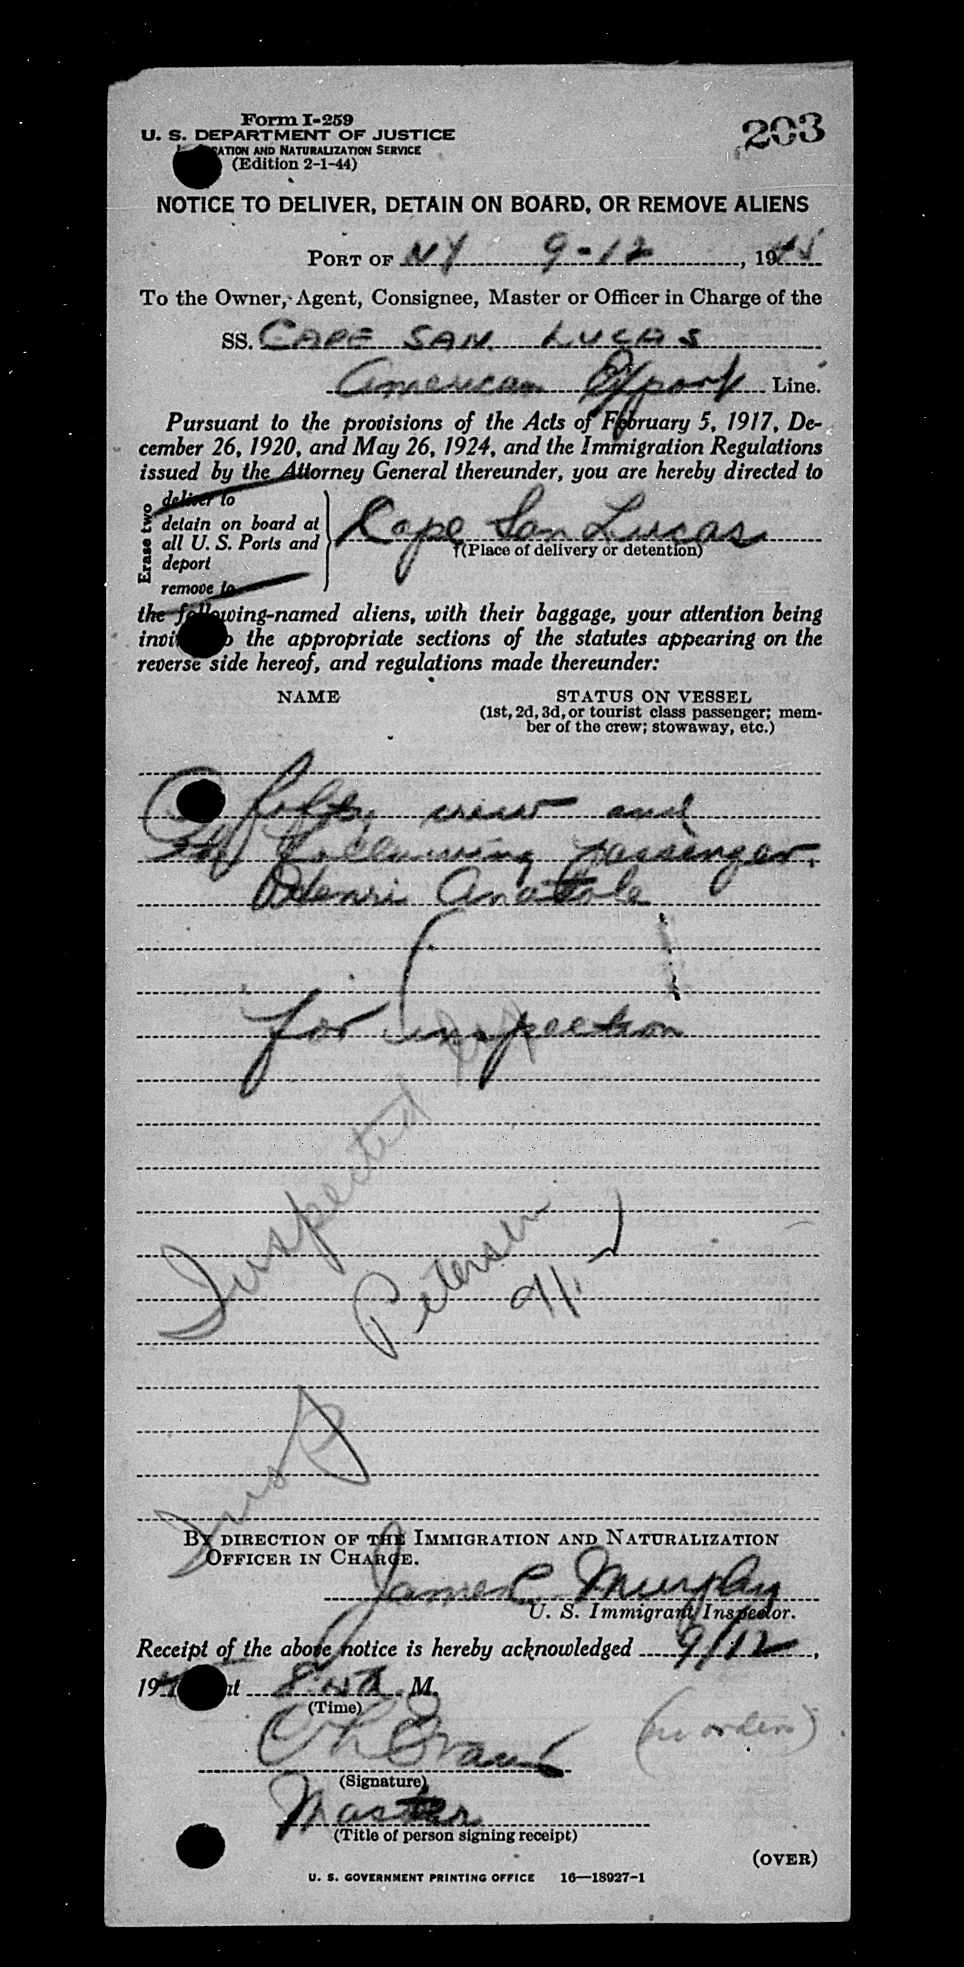 Form I-259
203
U. S. DEPARTMENT OF JUSTICE
AND NATURALIZATION SERVICE
(Edition 2-1-44)
NOTICE TO DELIVER, DETAIN ON BOARD, OR REMOVE ALIENS
PORT OF NY 9-12, 1945
To the Owner, Agent, Consignee, Master or Officer in Charge of the
SS. CAPE SAN LUCAS
American Export Line.
Pursuant to the provisions of the Acts of February 5, 1917, De-
cember 26, 1920, and May 26, 1924, and the Immigration Regulations
issued by the Attorney General thereunder, you are hereby directed to
Erase two
deliver to
detain on board at
all U. S. Ports and
deport
remove to
Cape San Lucas
(Place of delivery or detention)
the following-named aliens, with their baggage, your attention being
the appropriate sections of the statutes appearing on the
reverse side hereof, and regulations made thereunder:
NAME STATUS ON VESSEL
(1st, 2d, 3d, or tourist class passenger; mem-
ber of the crew; stowaway, etc.)
fifty crew and
following passenger.
Henri Anatole
for inspection
Inspected
Petersen
Insp
BY DIRECTION OF THE IMMIGRATION AND NATURALIZATION
OFFICER IN CHARGE.
James C. Murphy
U. S. Immigrant Inspector.
Receipt of the above notice is hereby acknowledged 9/12,
19 at M.
(Time)
(no orders)
(Signature)
Master
(Title of person signing receipt)
(OVER)
U. S. GOVERNMENT PRINTING OFFICE 16—18927-1